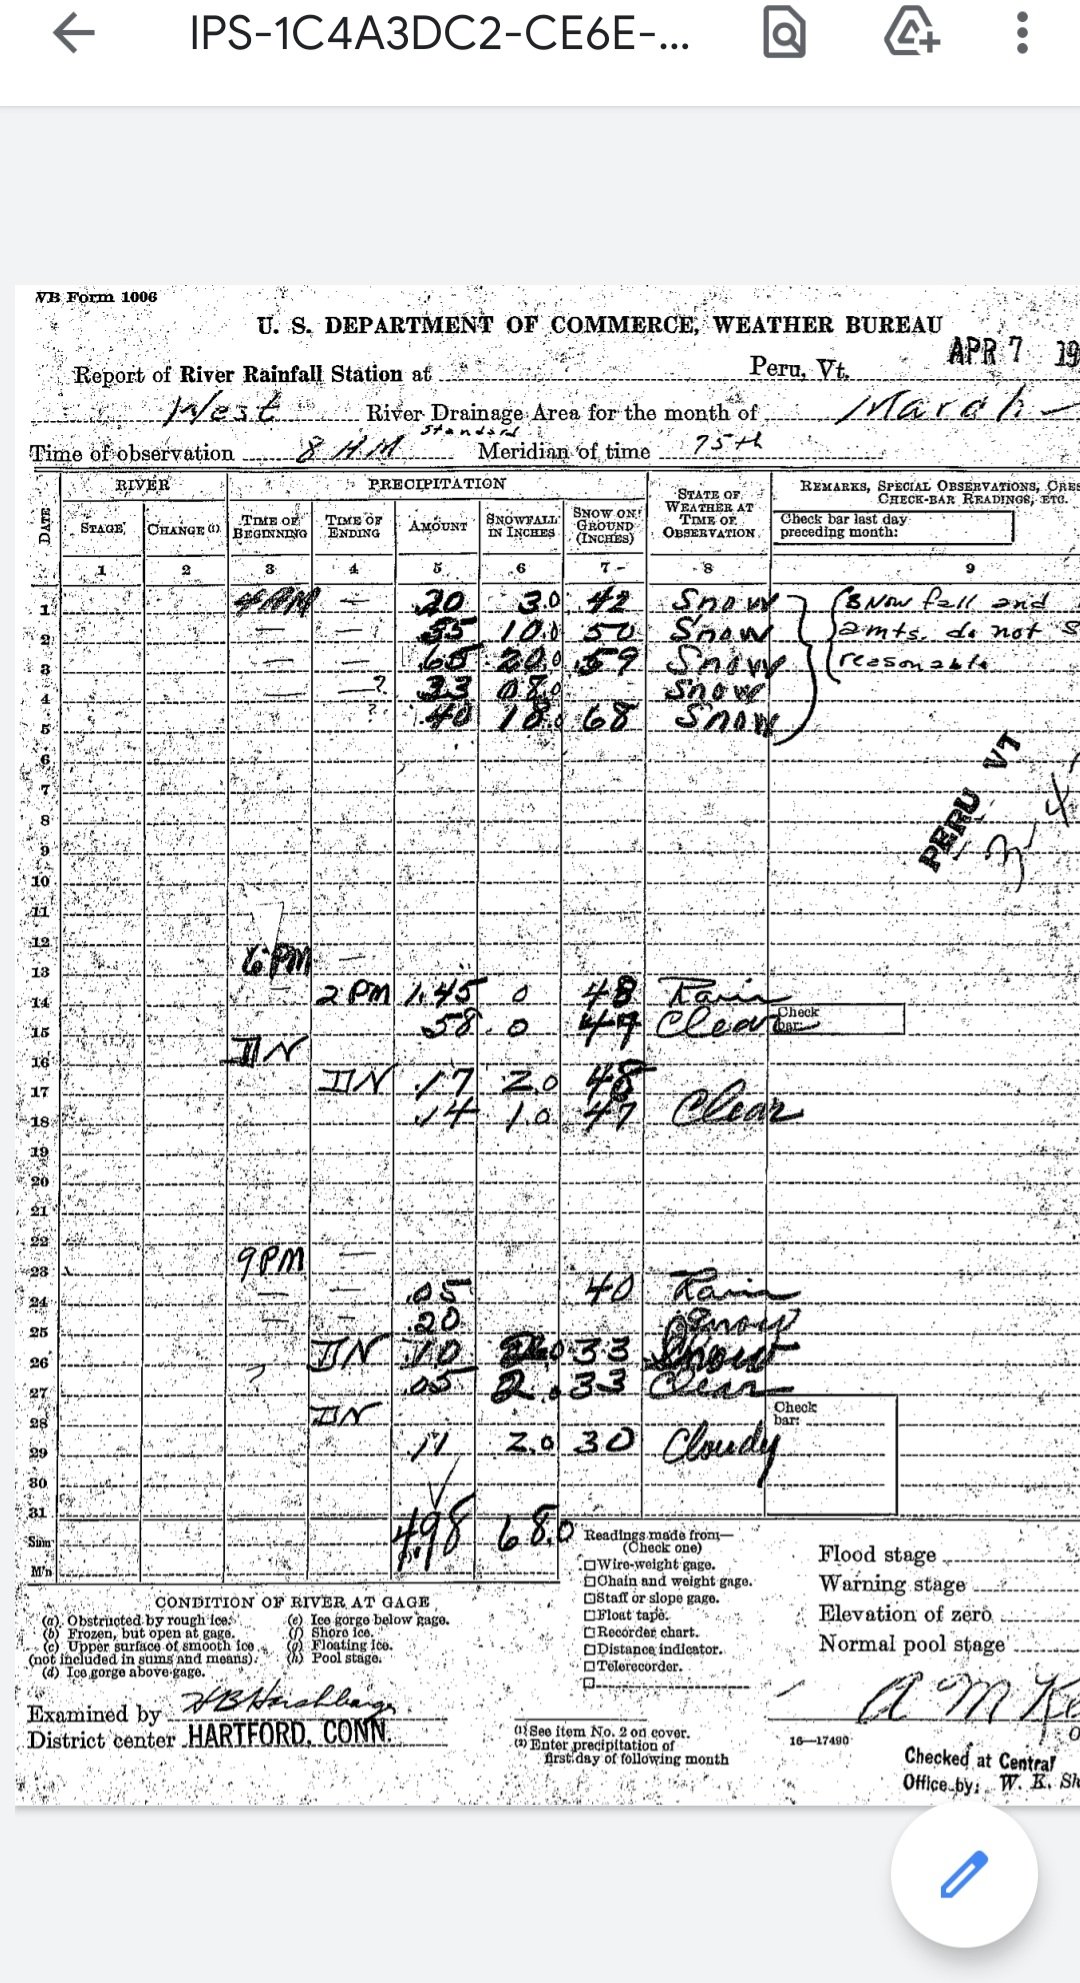 IPS-1C4A3DC2-CE6E-...
WB Form 1006
U. S. DEPARTMENT OF COMMERCE, WEATHER BUREAU
APR 7 19
Report of River Rainfall Station at Peru, Vt.
West River Drainage Area for the month of March
Standard
Time of observation 8 AM Meridian of time 75th
DATE RIVER PRECIPITATION STATE OF WEATHER AT TIME OF OBSERVATION REMARKS, SPECIAL OBSERVATIONS, CRES
CHECK-BAR READINGS, ETC.
STAGE CHANGE (1) TIME OF BEGINNING TIME OF ENDING AMOUNT SNOWFALL IN INCHES SNOW ON GROUND (INCHES) Check bar last day preceding month:
1 2 3 4 5 6 7 8 9
1 4 PM — .20 3.0 42 Snow Snow fall and
2 — — .55 10.0 50 Snow amts. do not s
3 — — .65 20.0 59 Snow reasonable
4 — —? .33 08.0 Snow
5 ? .40 18.0 68 Snow
6
7 PERU VT
8
9
10
11
12
13 6 PM —
14 — 2 PM 1.45 0 48 Rain
15 .58 0 47 Clear Check bar:
16 DN
17 DN .17 2.0 48
18 .14 1.0 47 Clear
19
20
21
22
23 9PM —
24 — — .05 40 Rain
25 — — .20 Snow
26 DN .10 33 Snow
27 ? .05 2.0 33 Clear
28 DN Check bar:
29 .11 2.0 30 Cloudy
30
31
Sum 4.98 68.0
M'n
Readings made from—
(Check one)
Wire-weight gage.
Chain and weight gage.
Staff or slope gage.
Float tape.
Recorder chart.
Distance indicator.
Telerecorder.
Flood stage
Warning stage
Elevation of zero
Normal pool stage
CONDITION OF RIVER AT GAGE
(a) Obstructed by rough ice. (e) Ice gorge below gage.
(b) Frozen, but open at gage. (f) Shore ice.
(c) Upper surface of smooth ice (g) Floating ice.
(not included in sums and means). (h) Pool stage.
(d) Ice gorge above gage.
Examined by
District center HARTFORD, CONN.
(1) See item No. 2 on cover.
(2) Enter precipitation of
first day of following month
A M
16—17490
Checked at Central
Office by: W. K. Sh